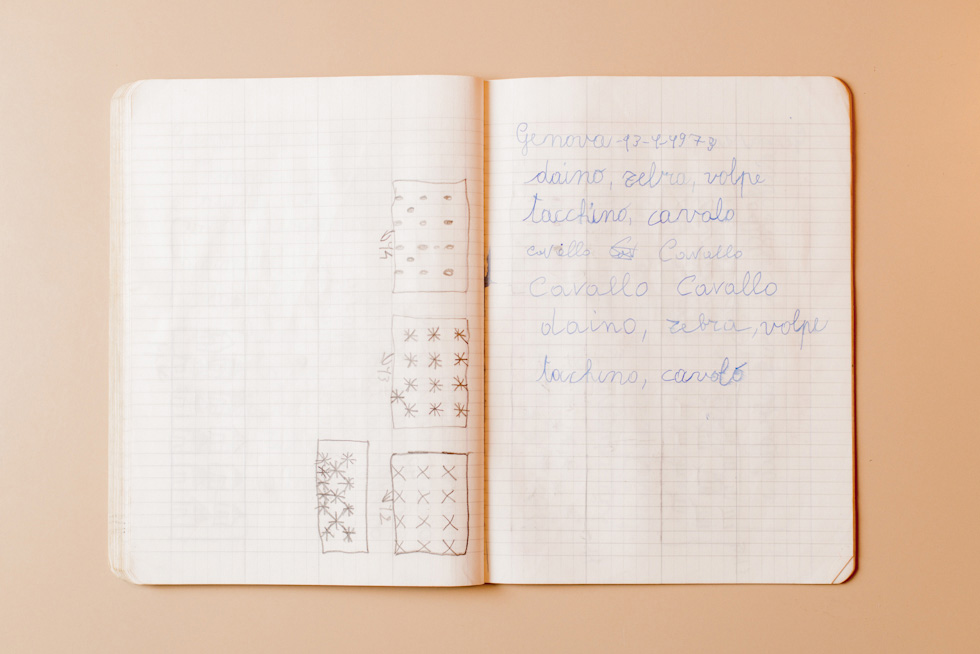 Genova 13-4-1973
daino, zebra, volpe
tacchino, cavalo
cavallo Cavallo
Cavallo Cavallo
daino, zebra, volpe
tachino, cavolo